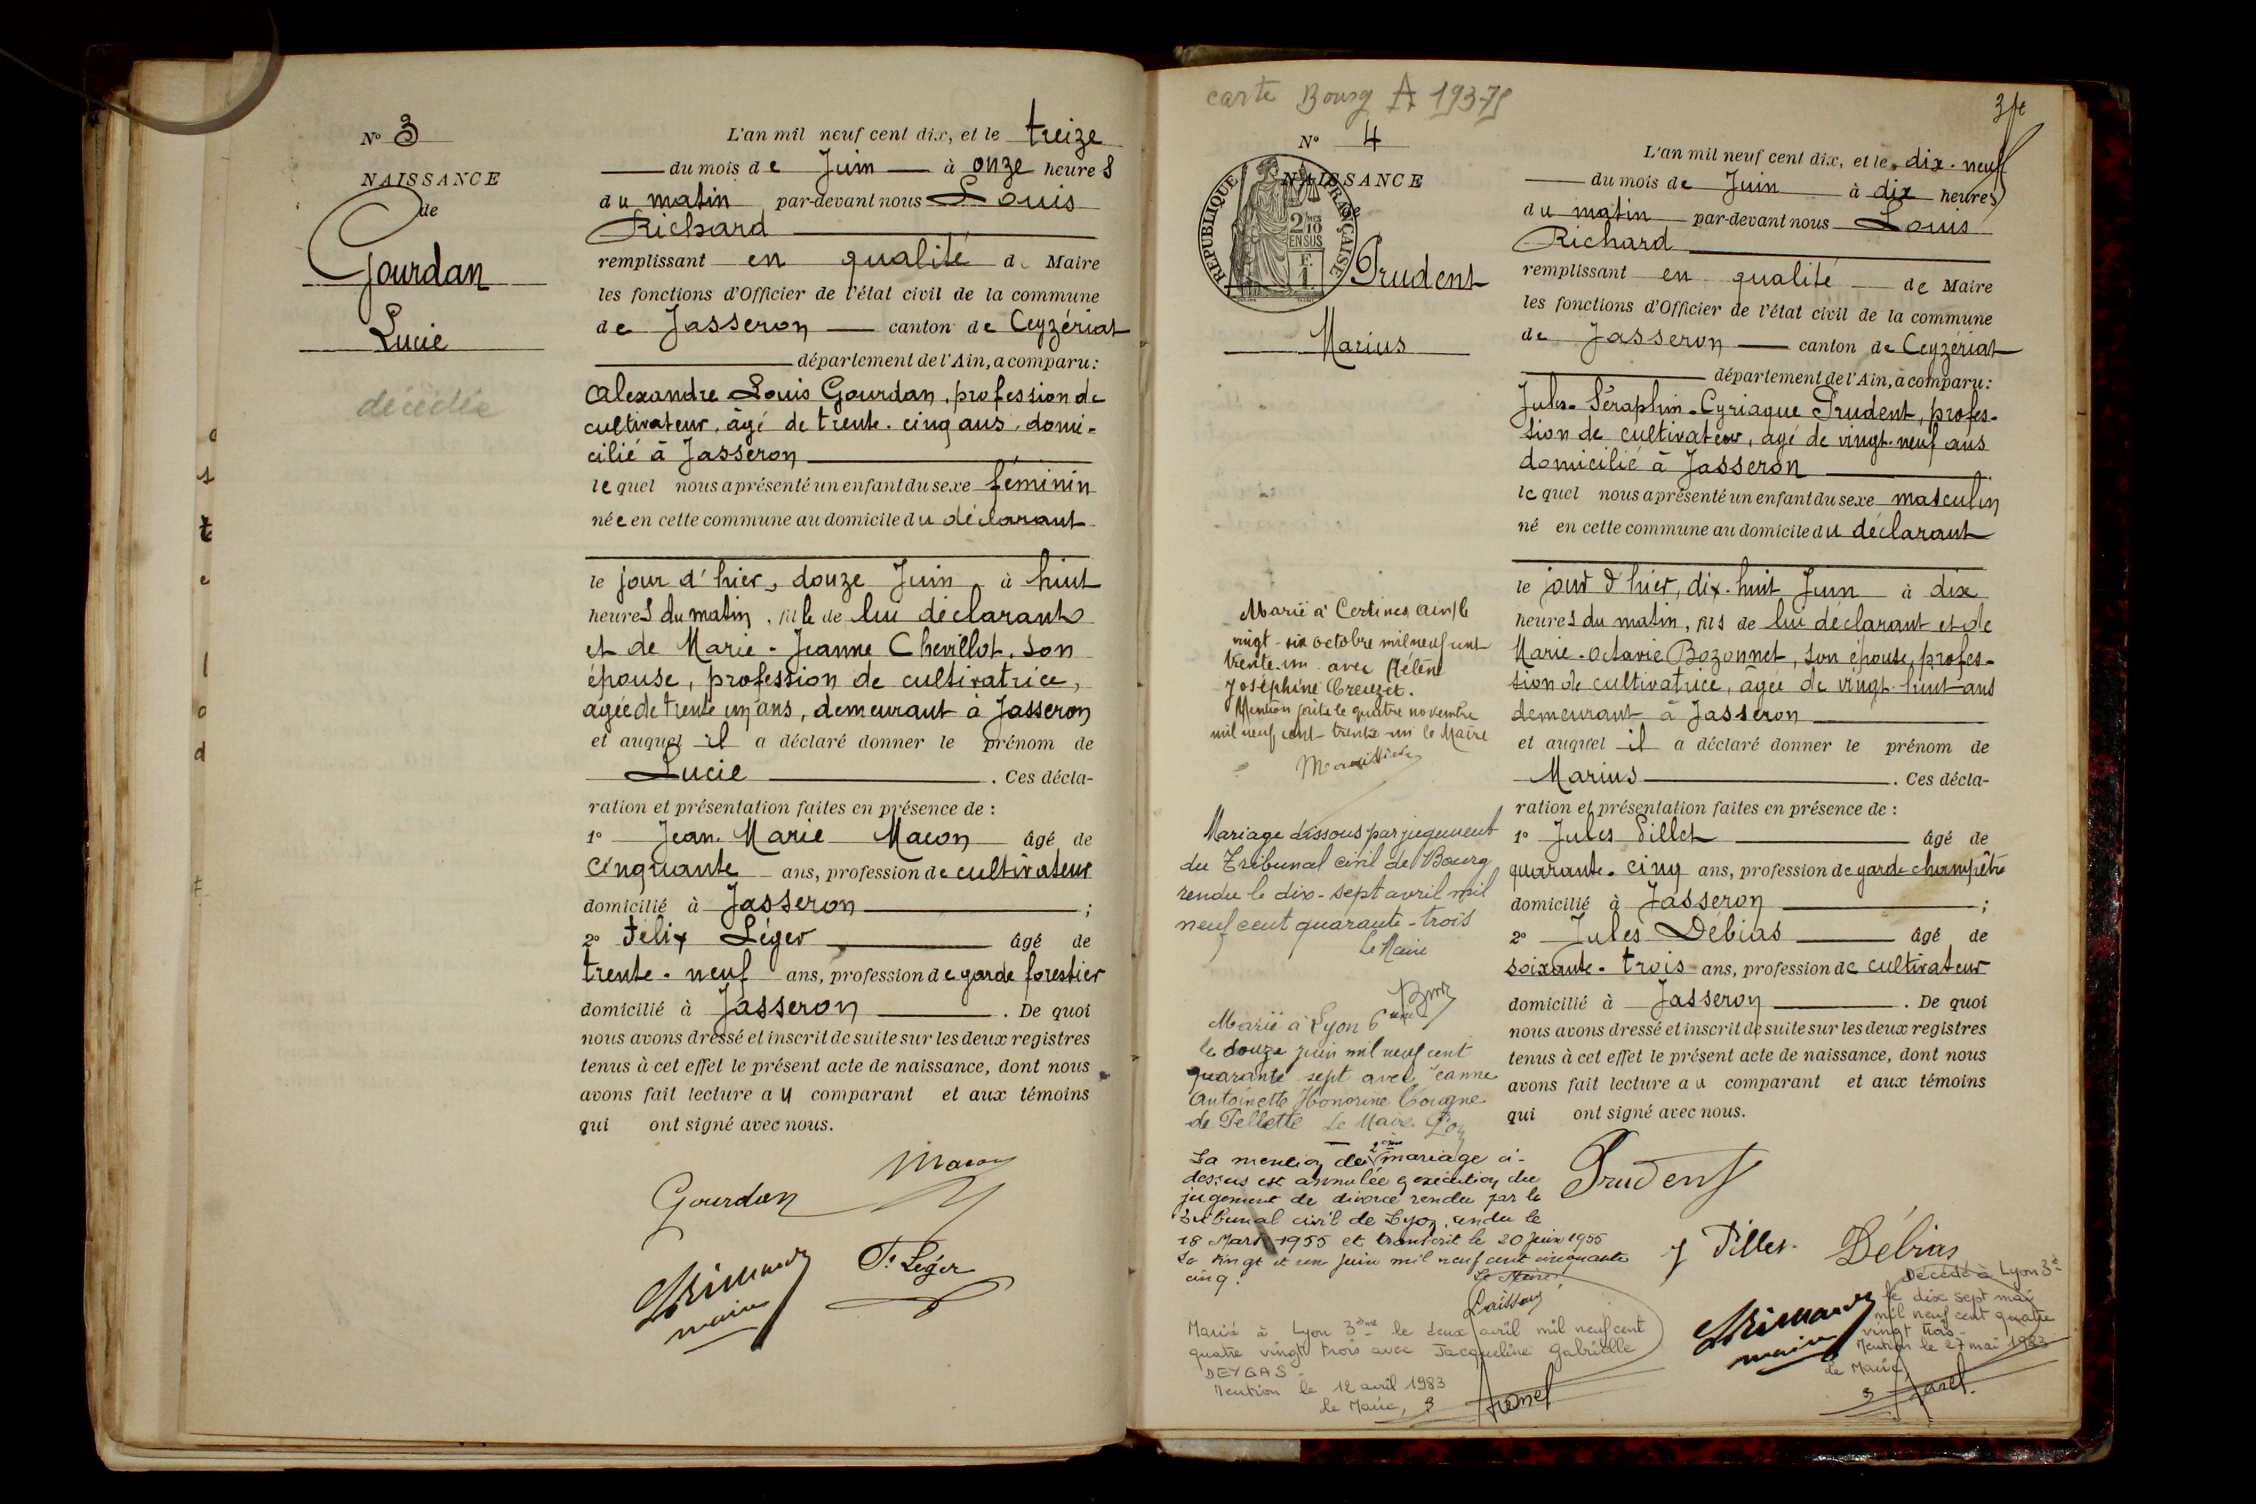 N° 3
NAISSANCE
de
Gourdan
Lucie
décédée
L'an mil neuf cent dix, et le treize
du mois de Juin à onze heures
du matin par-devant nous Louis
Richard
remplissant en qualité de Maire
les fonctions d'Officier de l'état civil de la commune
de Jasseron canton de Ceyzériat
département de l'Ain, a comparu:
Alexandre Louis Gourdan, profession de
cultivateur, âgé de trente-cinq ans, domi-
cilié à Jasseron
lequel nous a présenté un enfant du sexe féminin
née en cette commune au domicile du déclarant
le jour d'hier, douze Juin à huit
heures du matin, fille de lui déclarant
et de Marie-Jeanne Chevillot, son
épouse, profession de cultivatrice,
agée de trente un ans, demeurant à Jasseron
et auquel il a déclaré donner le prénom de
Lucie . Ces décla-
ration et présentation faites en présence de :
1° Jean-Marie Macon âgé de
cinquante ans, profession de cultivateur
domicilié à Jasseron ;
2° Félix Léger âgé de
trente-neuf ans, profession de garde forestier
domicilié à Jasseron . De quoi
nous avons dressé et inscrit de suite sur les deux registres
tenus à cet effet le présent acte de naissance, dont nous
avons fait lecture au comparant et aux témoins
qui ont signé avec nous.
Macon
Gourdan
F. Léger
maire
carte Bourg A 19375
N° 4
NAISSANCE
de
REPUBLIQUE FRANÇAISE
2/10
EN SUS
F.
1
Prudent
Marius
L'an mil neuf cent dix, et le dix-neuf
du mois de Juin à dix heures
du matin par-devant nous Louis
Richard
remplissant en qualité de Maire
les fonctions d'Officier de l'état civil de la commune
de Jasseron canton de Ceyzériat
département de l'Ain, a comparu:
Jules-Séraphin-Cyriaque Prudent, profes-
sion de cultivateur, agé de vingt-neuf ans
domicilié à Jasseron
lequel nous a présenté un enfant du sexe masculin
né en cette commune au domicile du déclarant
le jour d'hier, dix-huit Juin à dix
heures du matin, fils de lui déclarant et de
Marie-Octavie Bozonnet, son épouse, profes-
sion de cultivatrice, agée de vingt-huit ans
demeurant à Jasseron
et auquel il a déclaré donner le prénom de
Marius . Ces décla-
ration et présentation faites en présence de :
1° Jules Pillet âgé de
quarante-cinq ans, profession de garde champêtre
domicilié à Jasseron ;
2° Jules Débias âgé de
soixante-trois ans, profession de cultivateur
domicilié à Jasseron . De quoi
nous avons dressé et inscrit de suite sur les deux registres
tenus à cet effet le présent acte de naissance, dont nous
avons fait lecture au comparant et aux témoins
qui ont signé avec nous.
Prudent
J Pillet
Débias
maire
Marié à Certines Ain le
vingt-six octobre mil neuf cent
trente-un avec Hélène
Joséphine Creuzet.
Mention faite le quatre novembre
mil neuf cent trente-un le Maire
Mariage dissous par jugement
du Tribunal civil de Bourg
rendu le dix-sept avril mil
neuf cent quarante-trois
Le Maire
Marié à Lyon 6ème
le douze juin mil neuf cent
quarante sept avec Jeanne
Antoinette Honorine
de Le Maire
La mention de 2ème mariage ci-
dessus est annulée en exécution du
jugement de divorce rendu par le
tribunal civil de Lyon, rendu le
18 Mars 1955 et transcrit le 20 Juin 1955
Le vingt et un juin mil neuf cent cinquante
cinq.
Le Maire
Marié à Lyon 3ème le deux avril mil neuf cent
quatre vingt trois avec Jacqueline Gabrielle
DEYGAS
Mention le 12 avril 1983
le Maire,
Décédé à Lyon 3e
le dix sept mai
mil neuf cent quatre
vingt trois
Mention le 27 mai 1983
Le Maire